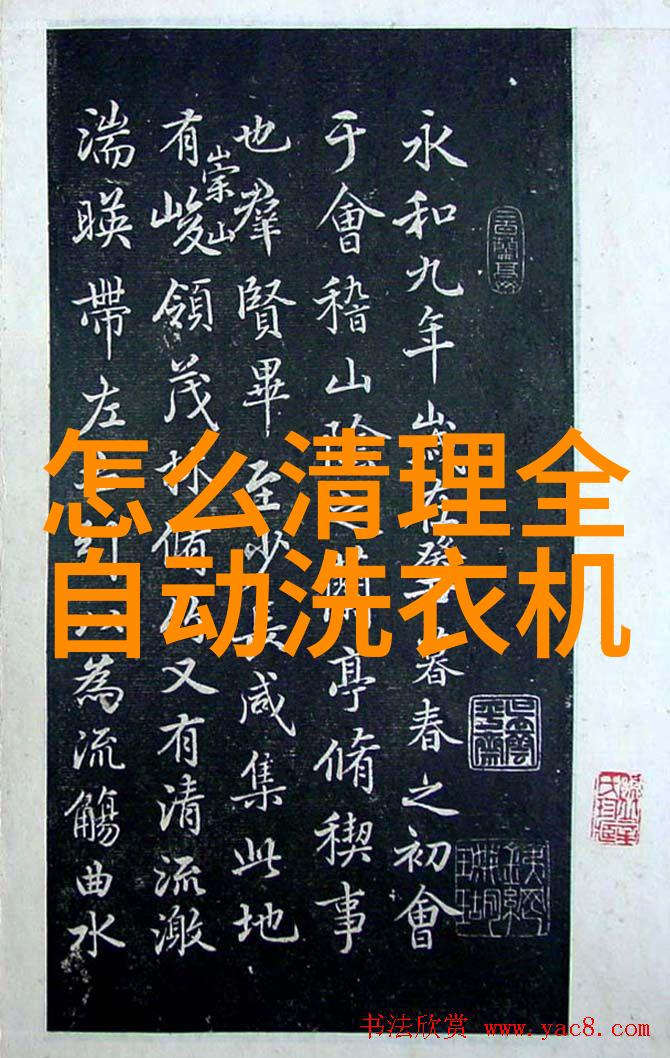 永和九年歲在癸丑暮春之初會
于會稽山陰之蘭亭脩稧事
也羣賢畢至少長咸集此地
有崇山峻領茂林脩竹又有清流激
湍暎帶左右引以為流觴曲水
怎么清理全
自动洗衣机
书法欣赏 www.yac8.com